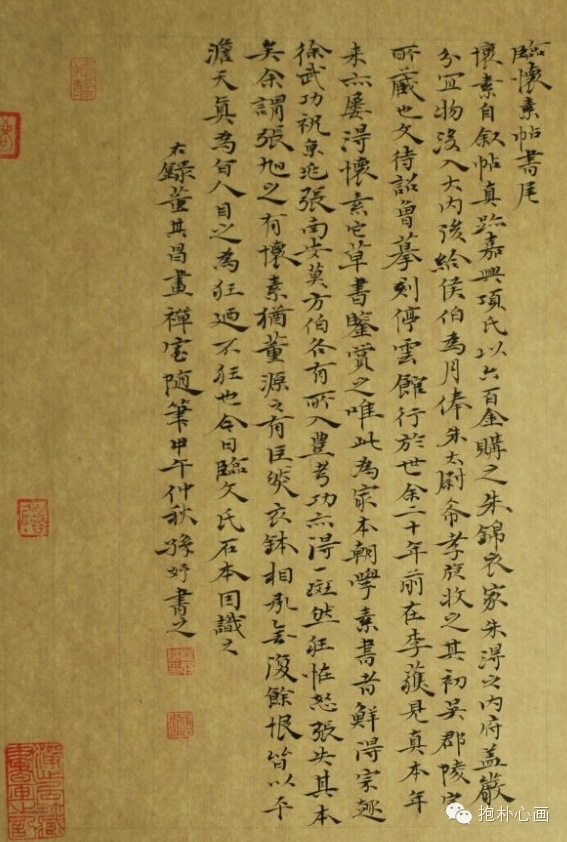 臨懷素帖書尾
懷素自叙帖真跡嘉興項氏以六百金購之朱錦衣家朱得之內府蓋嚴
分宜物沒入大內後給侯伯為月俸朱太尉希孝旋收之其初吳郡陸完
所藏也文待詔曾摹刻停雲館行於世余二十年前在李蓲見真本年
來亦屢得懷素它草書鑒賞之唯此為家本朝學素書者鮮得宗趣
徐武功祝京兆張南安莫方伯各有所入豐考功亦得一斑然狂怪怒張失其本
矣余謂張旭之有懷素猶董源之有巨然衣鉢相承無復餘恨皆以平
澹天真為旨人目之為狂廼不狂也今日臨文氏石本因識之
右錄董其昌畫禪室隨筆甲午仲秋 妤書之
抱朴心画